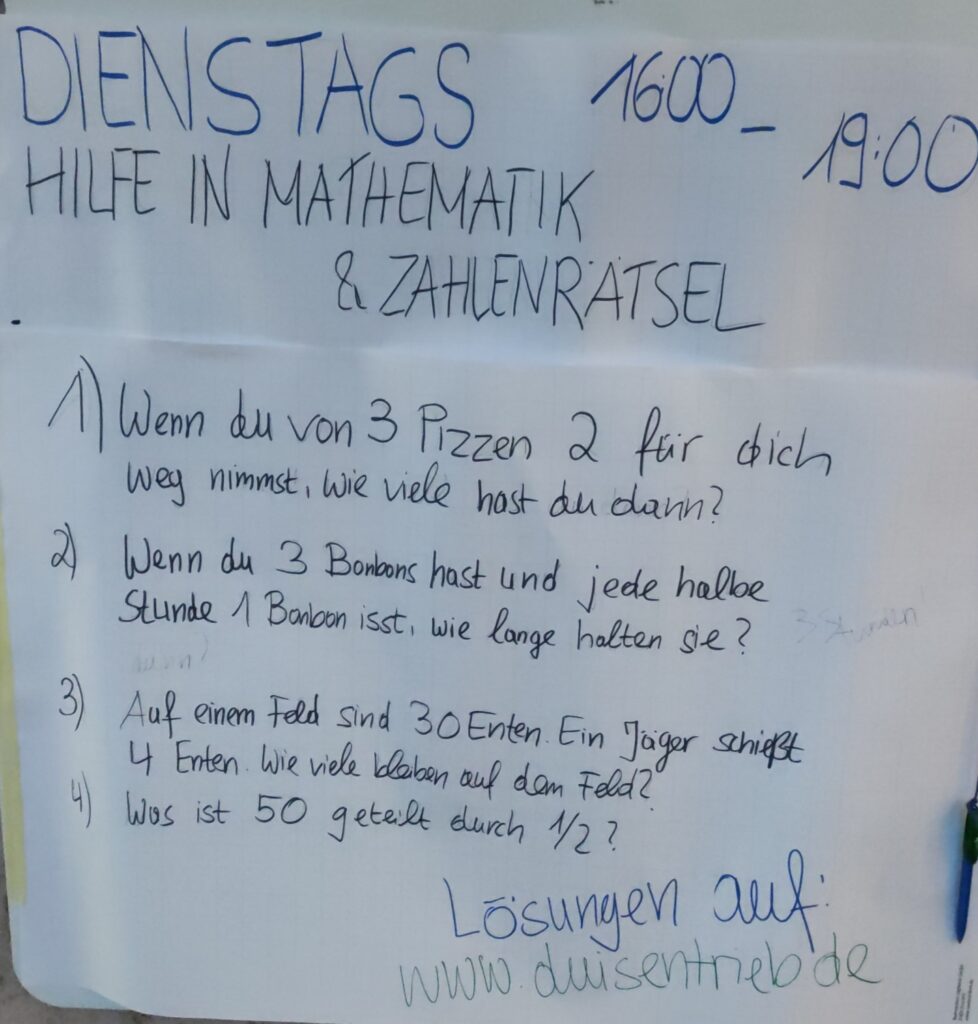 DIENSTAGS 16:00 - 19:00
HILFE IN MATHEMATIK
& ZAHLENRÄTSEL
1) Wenn du von 3 Pizzen 2 für dich
weg nimmst, wie viele hast du dann?
2) Wenn du 3 Bonbons hast und jede halbe
Stunde 1 Bonbon isst, wie lange halten sie? 3 Stunden
dann?
3) Auf einem Feld sind 30 Enten. Ein Jäger schießt
4 Enten. Wie viele bleiben auf dem Feld?
4) Was ist 50 geteilt durch 1/2?
Lösungen auf:
www.duisentrieb.de